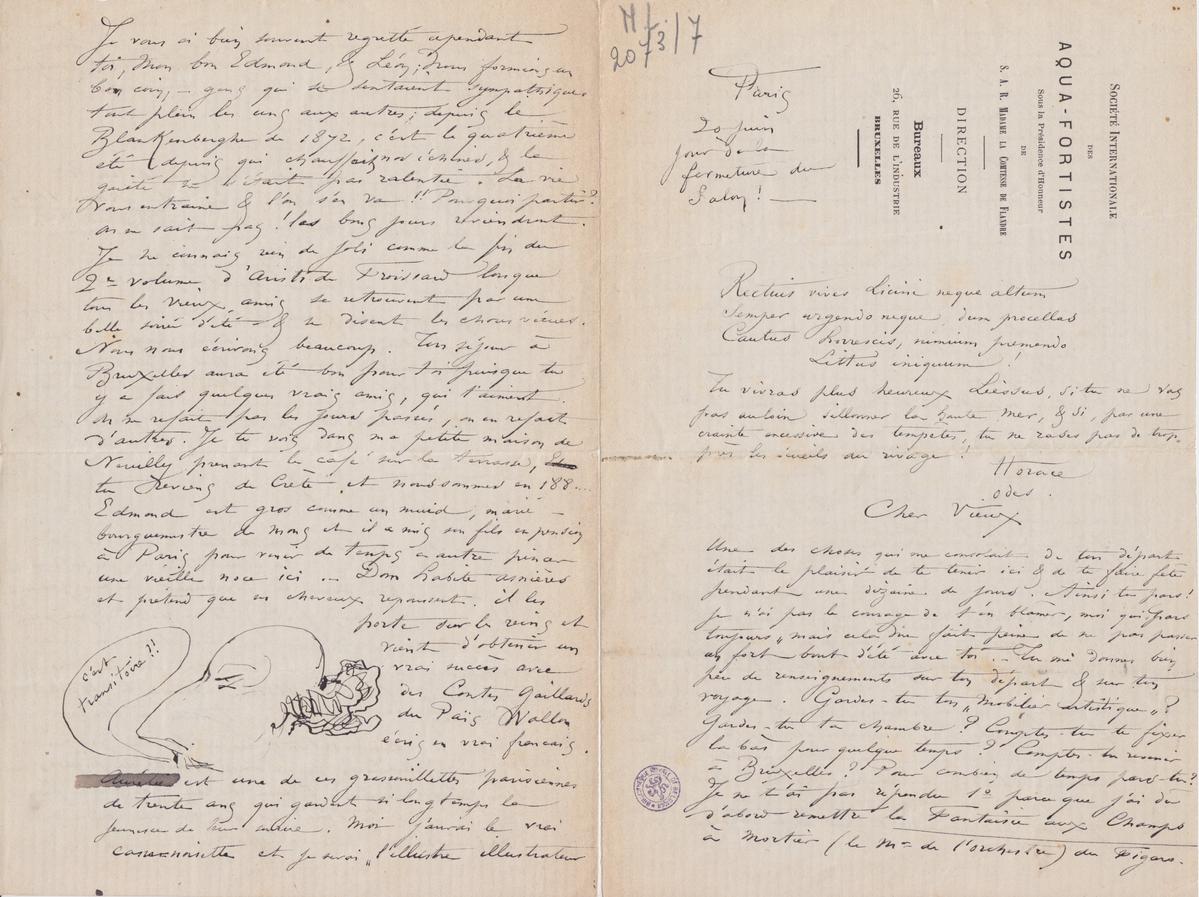 M/
2073/7
SOCIÉTÉ INTERNATIONALE
DES
AQUA-FORTISTES
Sous la Présidence d'Honneur
DE
S. A. R. MADAME LA COMTESSE DE FLANDRE
DIRECTION
Bureaux
26, RUE DE L'INDUSTRIE
BRUXELLES
Paris
20 juin
jour de la
fermeture du
Salon!
Rectius vives Licini neque altum
Semper urgendo neque, dum procellas
Cautus horrescis, nimium premendo
Littus iniquum!
Tu vivras plus heureux Liessus, si tu ne vas
pas au loin sillonner la haute mer, & si, par une
crainte excessive des tempêtes, tu ne rases pas de trop
près les écueils du rivage!
Horace
odes.
Cher Vieux
Une des choses qui me consolait de ton départ
était le plaisir de te tenir ici & de te faire fête
pendant une dizaine de jours. Ainsi tu pars!
Je n'ai pas le courage de t'en blâmer, moi qui pars
toujours, mais cela me fait peine de ne pas passer
un fort bout d'été avec toi... Tu me donnes bien
peu de renseignements sur ton départ & sur ton
voyage. Gardes-tu ton „Mobilier artistique"?
Gardes-tu ta chambre? Comptes-tu te fixer
là bas pour quelque temps? Comptes-tu revenir
à Bruxelles? Pour combien de temps pars-tu?
Je ne t'ai pas répondu 1° parce que j'ai dû
d'abord remettre la Fantaisie aux Champs
à Mortier (le Mr de l'orchestre) du Figaro.
Je vous ai bien souvent regretté cependant
toi, mon bon Edmond, & Léon; nous formions un
bon coin, – gens qui se sentaient sympathiques
tout plein les uns aux autres; depuis le
Blankenberghe de 1872, c'est le quatrième
été depuis qui chauffait nos échines, & la
gaieté ne s'était pas ralentie. La vie
vous entraine & l'on s'en va!! Pourquoi partir?
on ne sait pas! les bons jours reviendront.
Je ne connais rien de joli comme la fin du
2e volume d'Aristide Froissard lorsque
tous les vieux amis se retrouvent par une
belle soirée d'été & se disent les choses vécues.
Nous nous écrirons beaucoup. Ton séjour à
Bruxelles aura été bon pour toi puisque tu
y a fais quelques vrais amis, qui t'aiment.
On ne refait pas les jours passés, on en refait
d'autres. Je te vois dans ma petite maison de
Neuilly prenant le café sur la terrasse,
tu reviens de Crète et nous sommes en 188....
Edmond est gros comme un muid, marié –
bourguemestre de Mons et il a mis son fils en pension
à Paris pour venir de temps à autre pincer
une vieille noce ici... Dom habite Asnières
et prétend que ses cheveux repoussent. il les
porte sur les reins et
vient d'obtenir un
vrai succès avec
des Contes Gaillards
du Païs Wallon
écris en vrai français.
c'est
transitoire!!
est une de ces grassouillettes parisiennes
de trente ans qui gardent si longtemps la
jeunesse de leur. Moi j'aurai le vrai
et je serai „l'illustre illustrateur